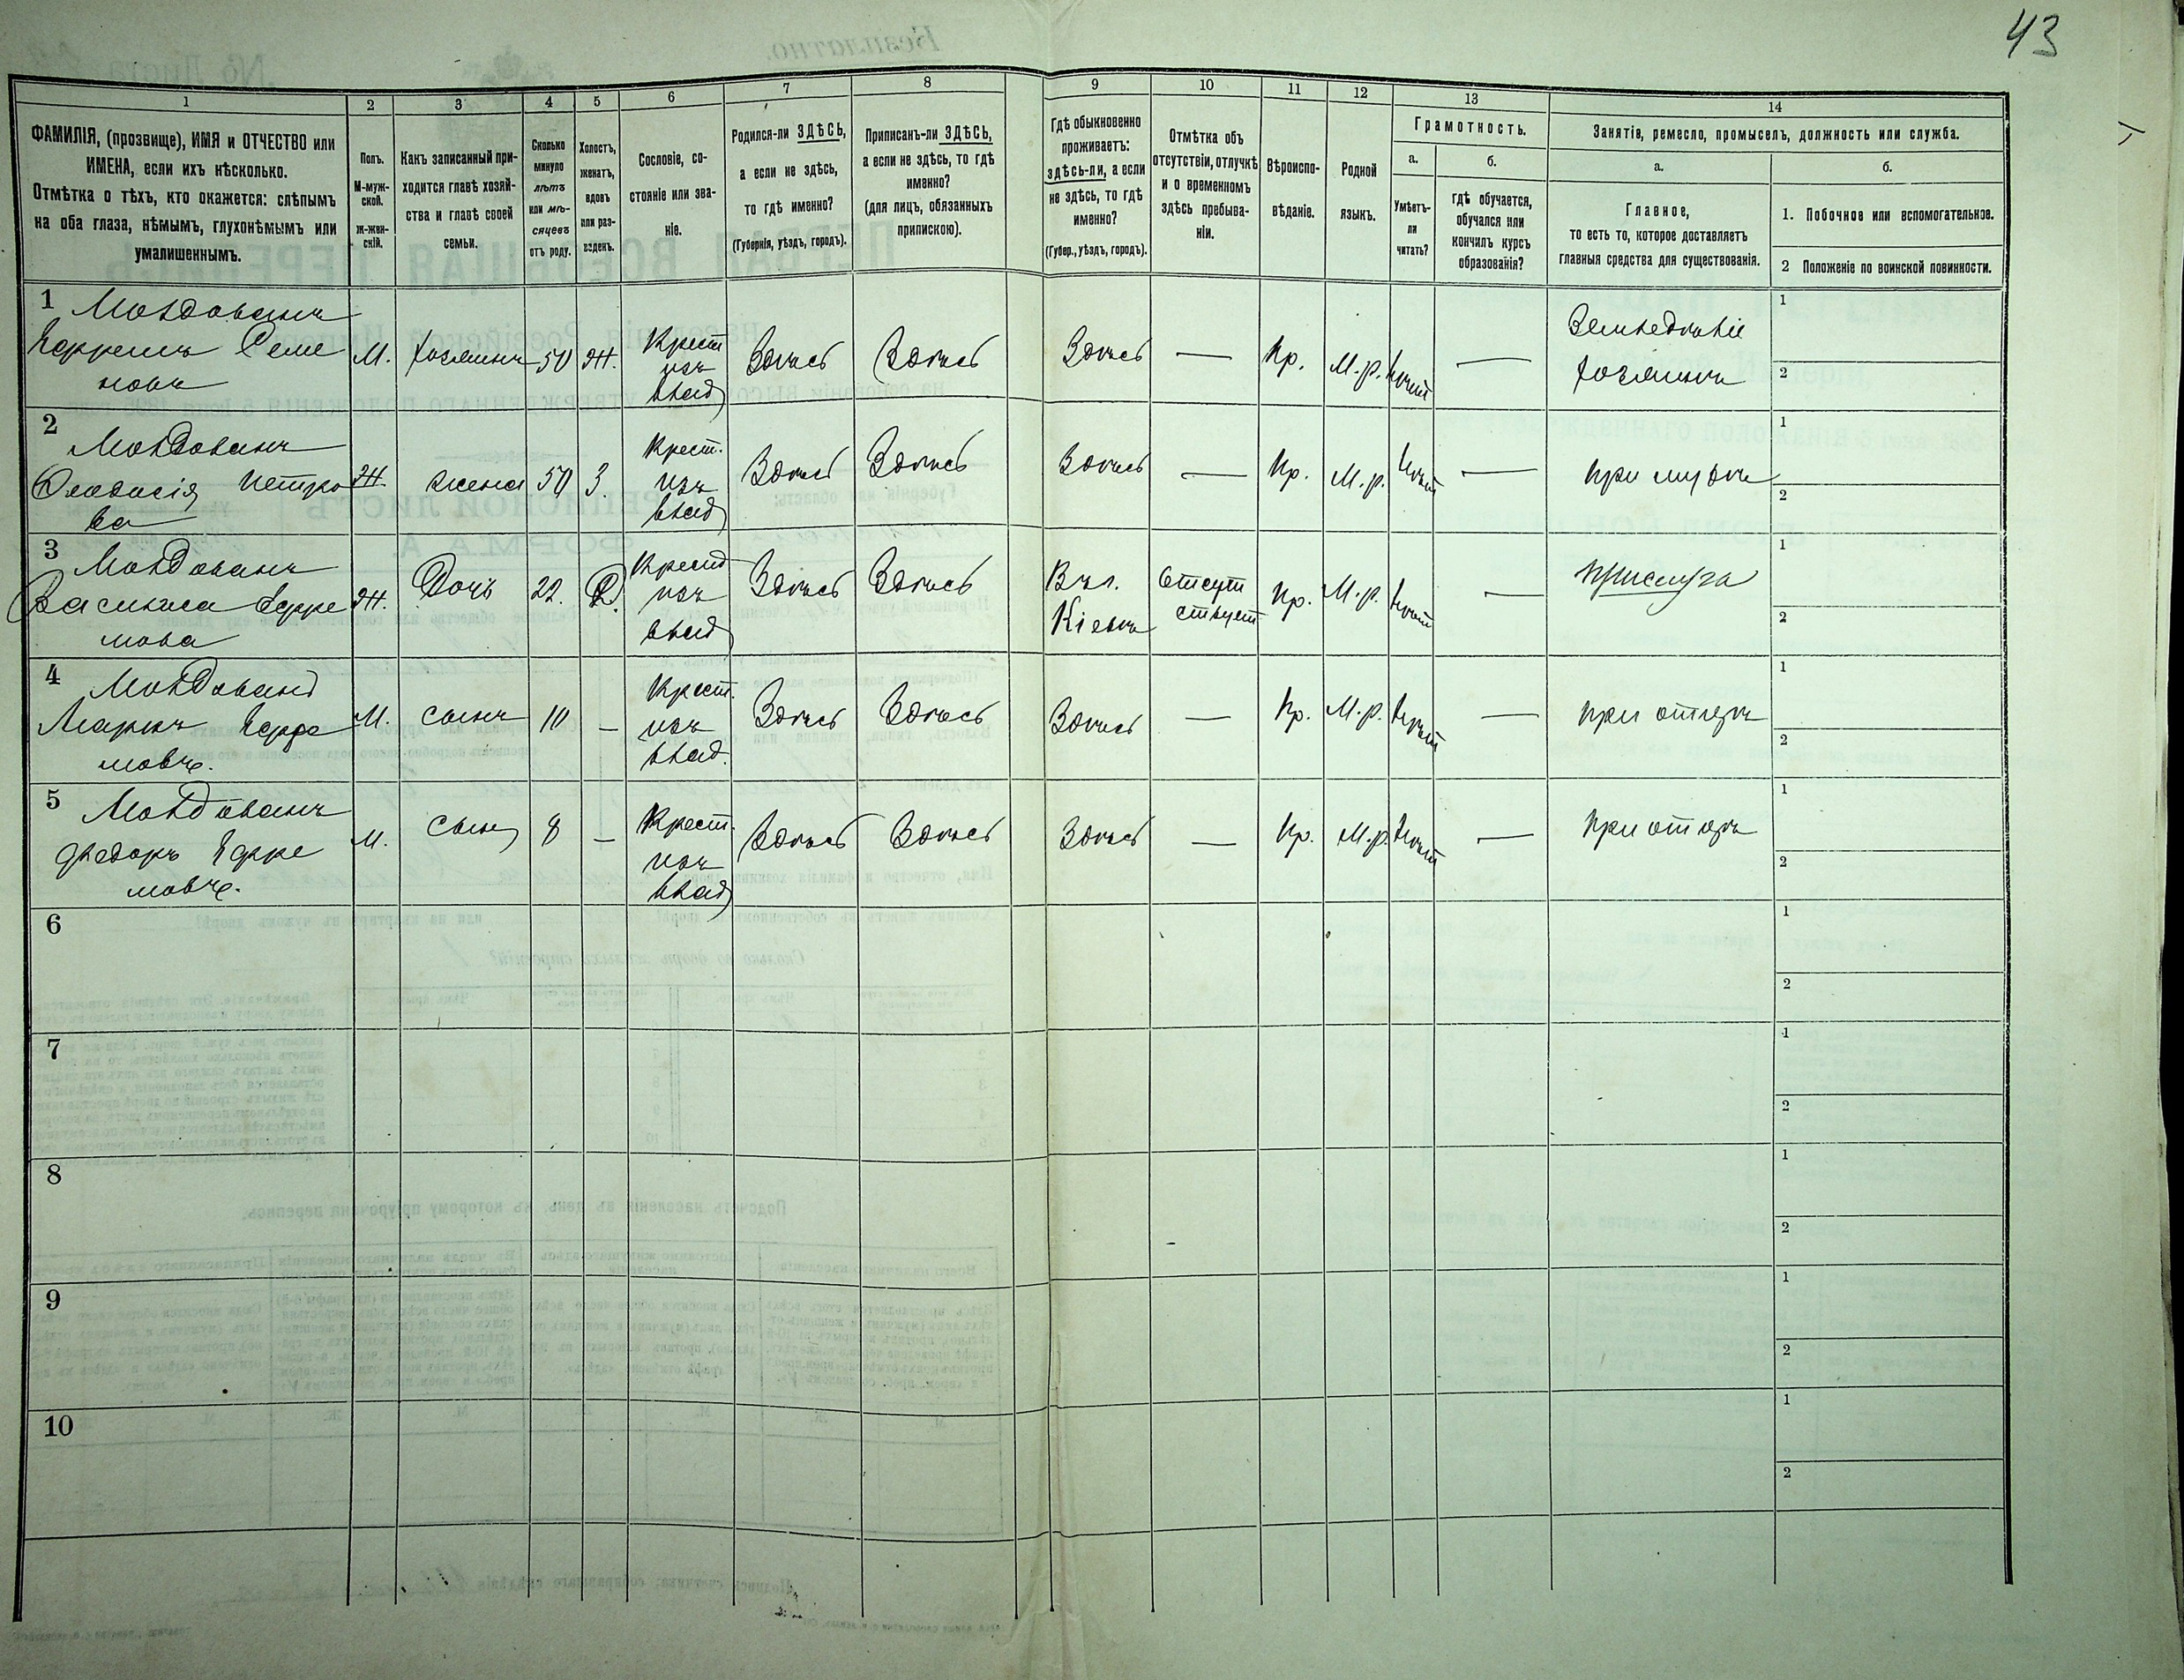 43
1
2
3
4
5
6
7
8
9
10
11
12
13
14
ФАМИЛІЯ, (прозвище), ИМЯ и ОТЧЕСТВО или
ИМЕНА, если ихъ нѣсколько.
Отмѣтка о тѣхъ, кто окажется: слѣпымъ
на оба глаза, нѣмымъ, глухонѣмымъ или
умалишеннымъ.
Полъ.
М-муж-
ской.
ж-жен-
скій.
Какъ записанный при-
ходится главѣ хозяй-
ства и главѣ своей
семьи.
Сколько
минуло
лѣтъ
или мѣ-
сяцевъ
отъ роду.
Холостъ,
женатъ,
вдовъ
или раз-
веденъ.
Сословіе, со-
стояніе или зва-
ніе.
Родился-ли ЗДѢСЬ,
а если не здѣсь,
то гдѣ именно?
(Губернія, уѣздъ, городъ).
Приписанъ-ли ЗДѢСЬ,
а если не здѣсь, то гдѣ
именно?
(для лицъ, обязанныхъ
припискою).
Гдѣ обыкновенно
проживаетъ:
здѣсь-ли, а если
не здѣсь, то гдѣ
именно?
(Губер., уѣздъ, городъ).
Отмѣтка объ
отсутствіи, отлучкѣ
и о временномъ
здѣсь пребыва-
ніи.
Вѣроиспо-
вѣданіе.
Родной
языкъ.
Грамотность.
а.
Умѣетъ-
ли
читать?
б.
гдѣ обучается,
обучался или
кончилъ курсъ
образованія?
Занятіе, ремесло, промыселъ, должность или служба.
а.
Главное,
то есть то, которое доставляетъ
главныя средства для существованія.
б.
1. Побочное или вспомогательное.
2 Положеніе по воинской повинности.
1 Молдованъ
Ефремъ Семе
новъ
М.
хозяинъ
50
Ж.
Крест
изъ
влад
Здѣсь
Здѣсь
Здѣсь
—
Пр.
М.р.
нѣтъ
—
Земледѣліе
хозяинъ
1
2
2 Молдованъ
Феодосія Петро
ва
Ж.
жена
50
З.
Крест.
изъ
влад
Здѣсь
Здѣсь
Здѣсь
—
Пр.
М.р.
нѣтъ
—
при мужѣ
1
2
3 Молдованъ
Василиса Ефре
мова
Ж.
Дочь
22.
Д.
Крест
изъ
влад
Здѣсь
Здѣсь
Въ г.
Кіевѣ
Отсут
ствует
Пр.
М.р.
нѣтъ
—
прислуга
1
2
4 Молдованъ
Маркъ Ефре
мовъ.
М.
сынъ
10
—
Крест.
изъ
влад.
Здѣсь
Здѣсь
Здѣсь
—
Пр.
М.р.
нѣтъ
—
при отцѣ
1
2
5 Молдованъ
Федоръ Ефре
мовъ.
М.
сын
8
—
Крест.
изъ
влад
Здѣсь
Здѣсь
Здѣсь
—
Пр.
М.р.
нѣтъ
—
при отцѣ
1
2
6
1
2
7
1
2
8
1
2
9
1
2
10
1
2